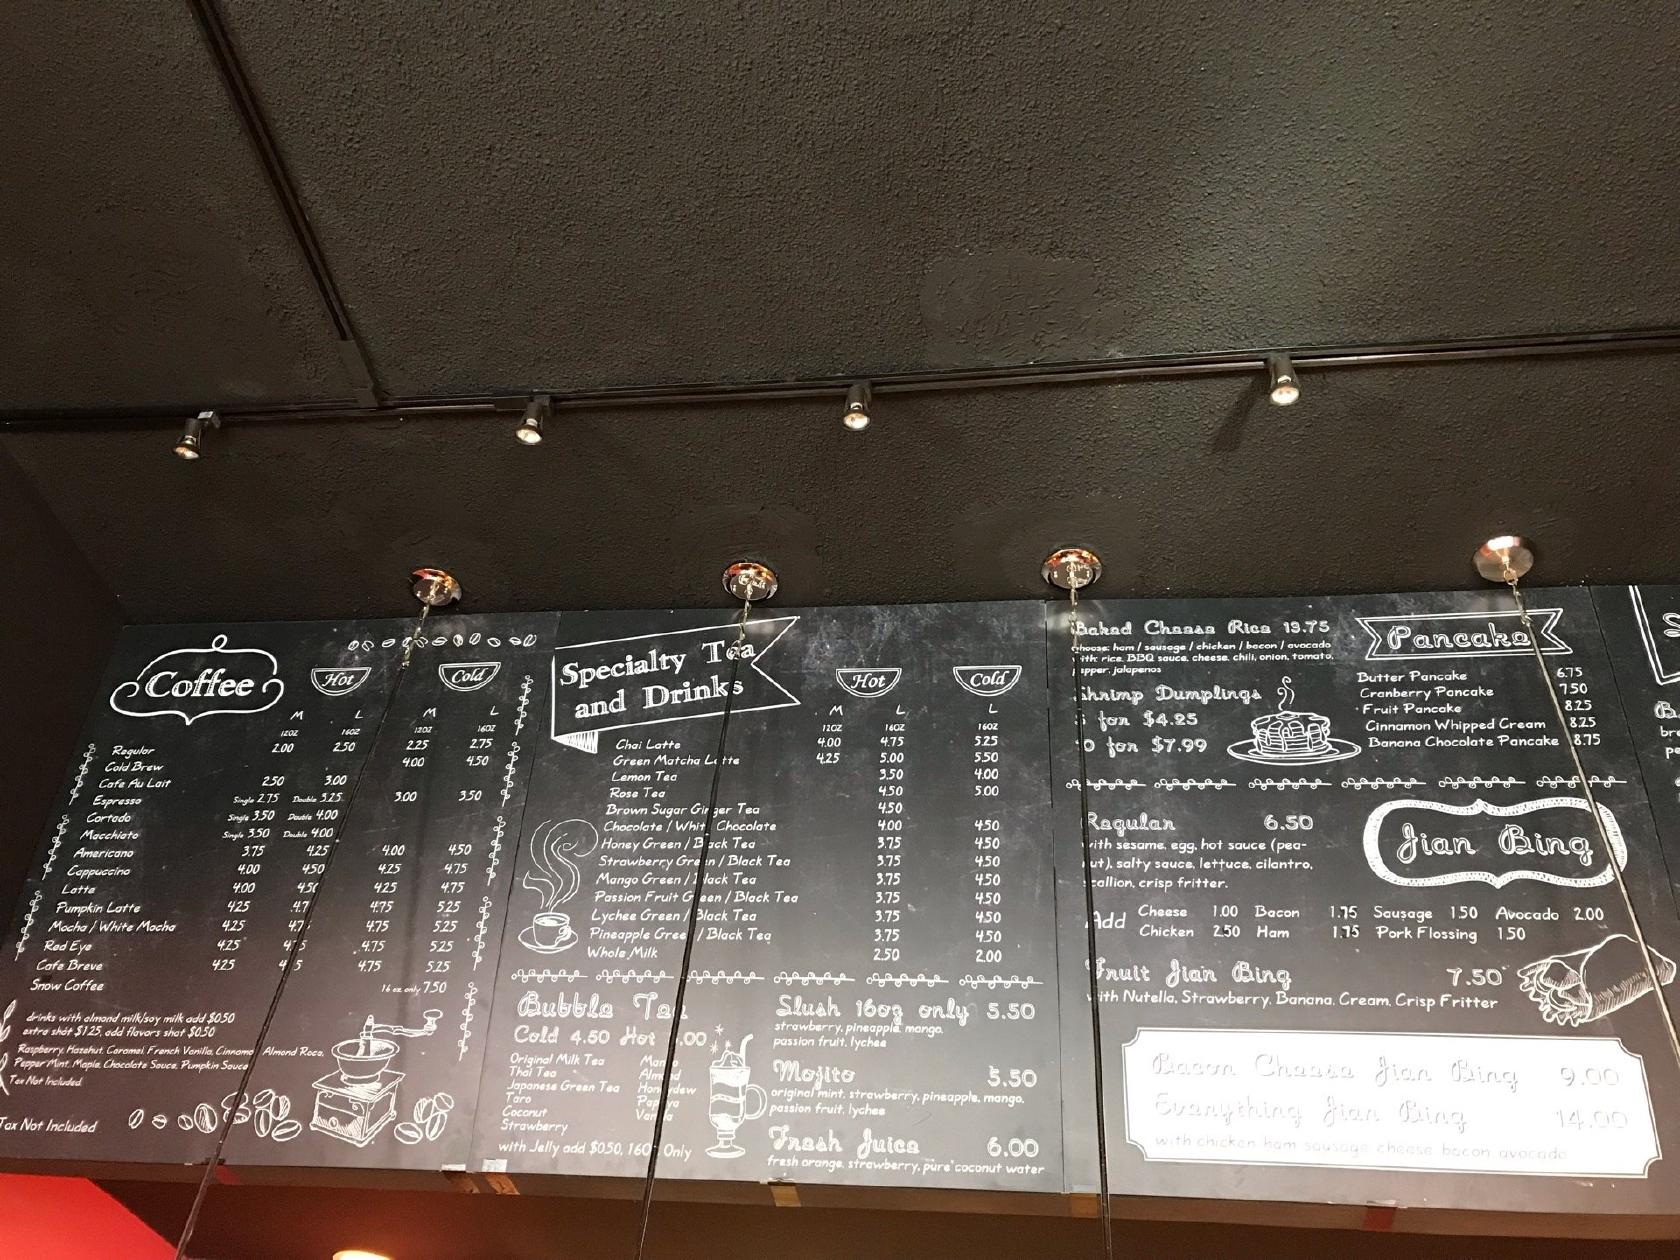 Coffee
Hot Cold
M L M L
12OZ 16OZ 12OZ 16OZ
Regular 2.00 2.50 2.25 2.75
Cold Brew 4.00 4.50
Cafe Au Lait 2.50 3.00
Espresso Single 2.75 Double 3.25 3.00 3.50
Cortado Single 3.50 Double 4.00
Macchiato Single 3.50 Double 4.00
Americano 3.75 4.25 4.00 4.50
Cappuccino 4.00 4.50 4.25 4.75
Latte 4.00 4.25 4.75
Pumpkin Latte 4.25 4.75 5.25
Mocha / White Mocha 4.25 4.75 5.25
Red Eye 4.25 4.75 5.25
Cafe Breve 4.25 4.75 5.25
Snow Coffee 16 oz only 7.50
drinks with almond milk/soy milk add $0.50
extra shot $1.25, add flavors shot $0.50
Raspberry, Hazelnut, Caramel, French Vanilla, Almond Roca,
Pepper Mint, Maple, Chocolate Sauce, Pumpkin Sauce
Tax Not Included
Tax Not Included
Specialty Tea
and Drinks
Hot Cold
M L L
12OZ 16OZ 16OZ
Chai Latte 4.00 4.75 5.25
Green Matcha Latte 4.25 5.00 5.50
Lemon Tea 3.50 4.00
Rose Tea 4.50 5.00
Brown Sugar Ginger Tea 4.50
Chocolate / White Chocolate 4.00 4.50
Honey Green / Black Tea 3.75 4.50
Strawberry Green / Black Tea 3.75 4.50
Mango Green / Black Tea 3.75 4.50
Passion Fruit Green / Black Tea 3.75 4.50
Lychee Green / Black Tea 3.75 4.50
Pineapple Green / Black Tea 3.75 4.50
Whole Milk 2.50 2.00
Bubble Tea
Cold 4.50 Hot
Original Milk Tea Mango
Thai Tea Almond
Japanese Green Tea Honeydew
Taro Papaya
Coconut Vanilla
Strawberry
with Jelly add $0.50, Only
Slush 16oz only 5.50
strawberry, pineapple, mango,
passion fruit, lychee
Mojito 5.50
original mint, strawberry, pineapple, mango,
passion fruit, lychee
Fresh Juice 6.00
fresh orange, strawberry, pure coconut water
Baked Cheese Rice 13.75
choose: ham / sausage / chicken / bacon / avocado
with: rice, BBQ sauce, cheese, chili, onion, tomato,
pepper, jalapenos
Shrimp Dumplings
for $4.25
for $7.99
Pancake
Butter Pancake 6.75
Cranberry Pancake 7.50
Fruit Pancake 8.25
Cinnamon Whipped Cream 8.25
Banana Chocolate Pancake 8.75
Jian Bing
Regular 6.50
with sesame, egg, hot sauce (pea-
nut), salty sauce, lettuce, cilantro,
scallion, crisp fritter.
Add Cheese 1.00 Bacon 1.75 Sausage 1.50 Avocado 2.00
Chicken 2.50 Ham 1.75 Pork Flossing 1.50
Fruit Jian Bing 7.50
with Nutella, Strawberry, Banana, Cream, Crisp Fritter
Bacon Cheese Jian Bing 9.00
Everything Jian Bing 14.00
with chicken ham sausage cheese bacon avocado